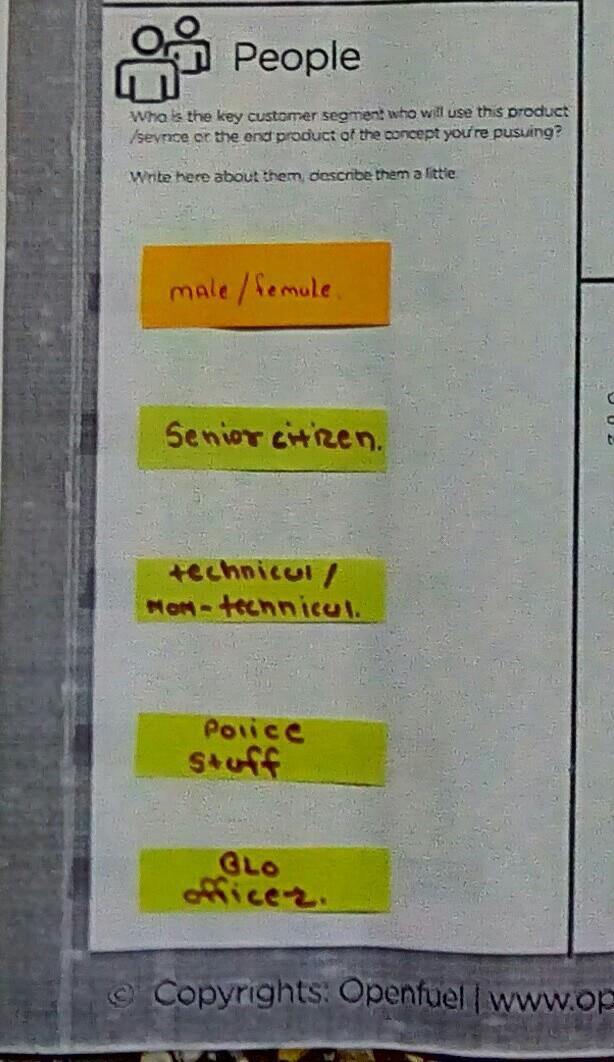 People
Who is the key customer segment who will use this product
/sevrice or the end product of the concept you're pusuing?
Write here about them, describe them a little.
male / female.
Senior citizen.
technical /
Non-technical.
Police
Staff
BLO
officer.
© Copyrights: Openfuel | www.op